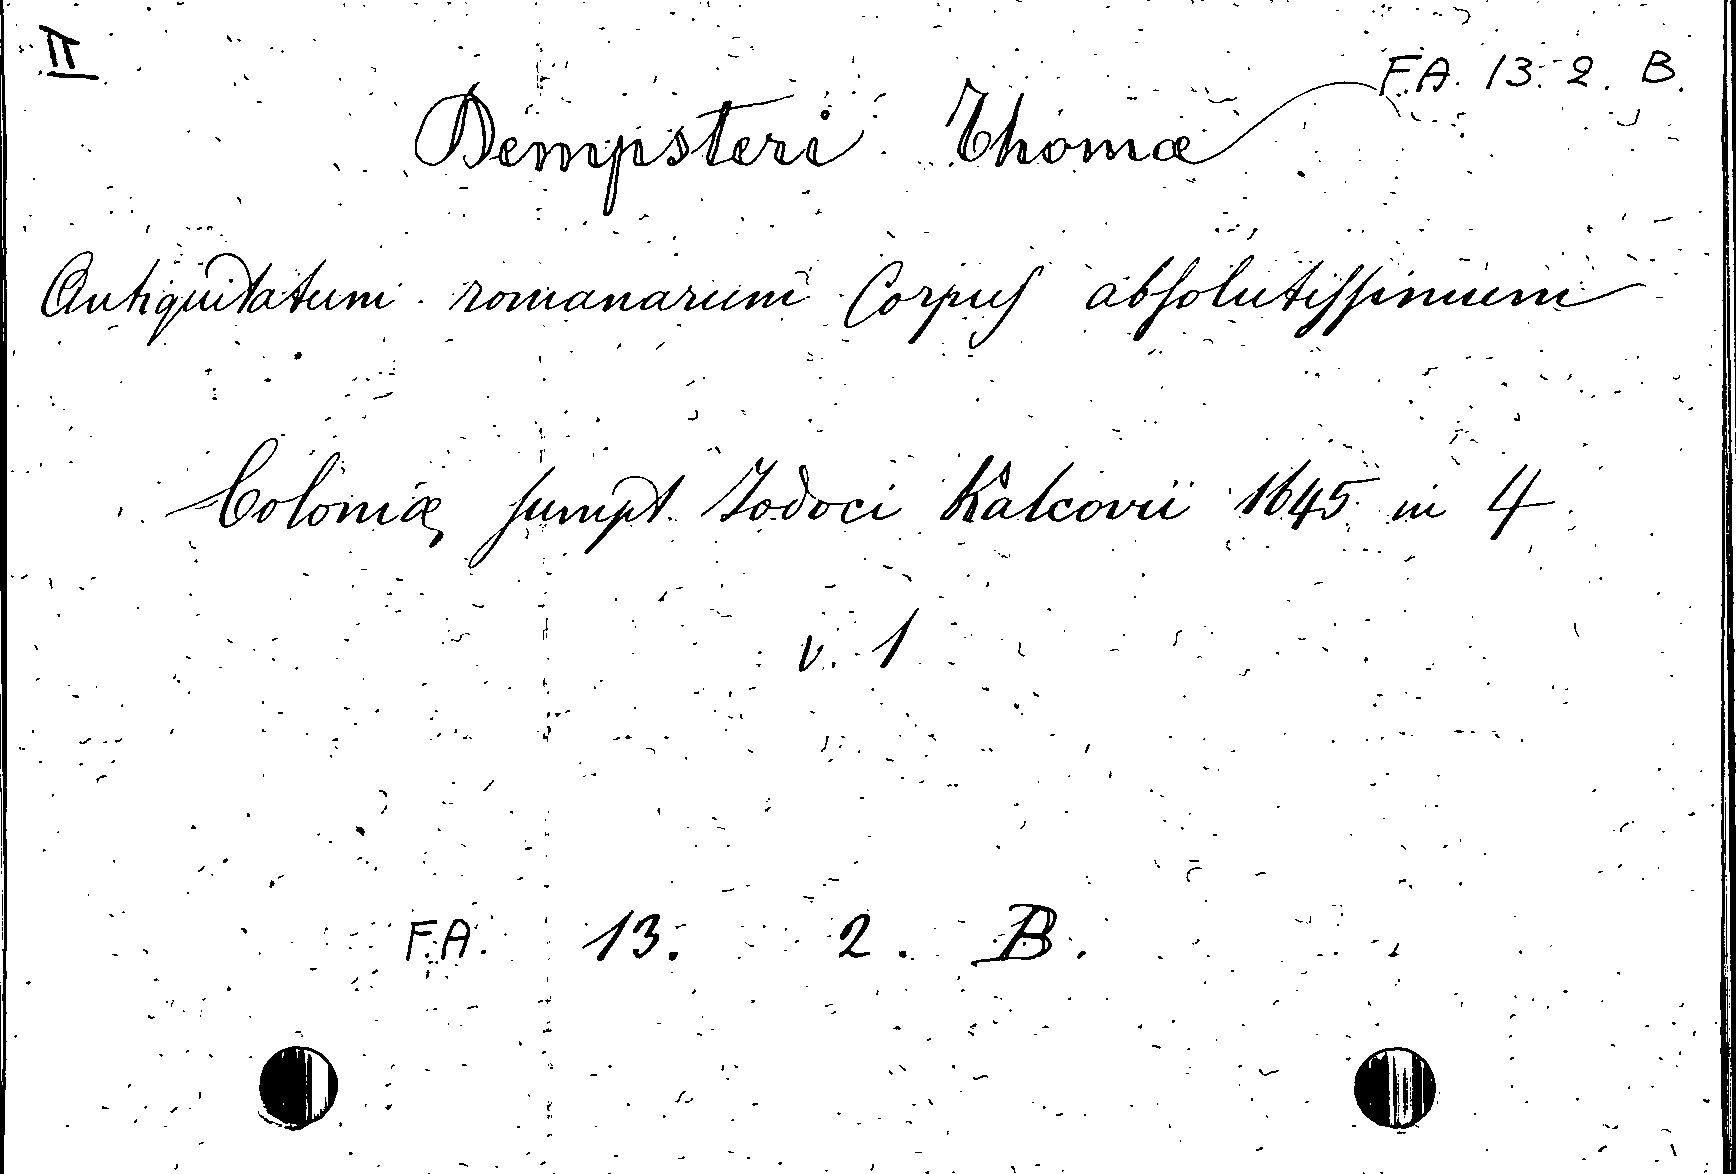 II
FA. 13. 2. B.
Dempsteri Thomæ
Antiquitatum romanarum Corpus absolutissimum
Coloniæ, sumpt. Jodoci Kalcovii 1645 in 4
v. 1
F.A. 13. 2. B.